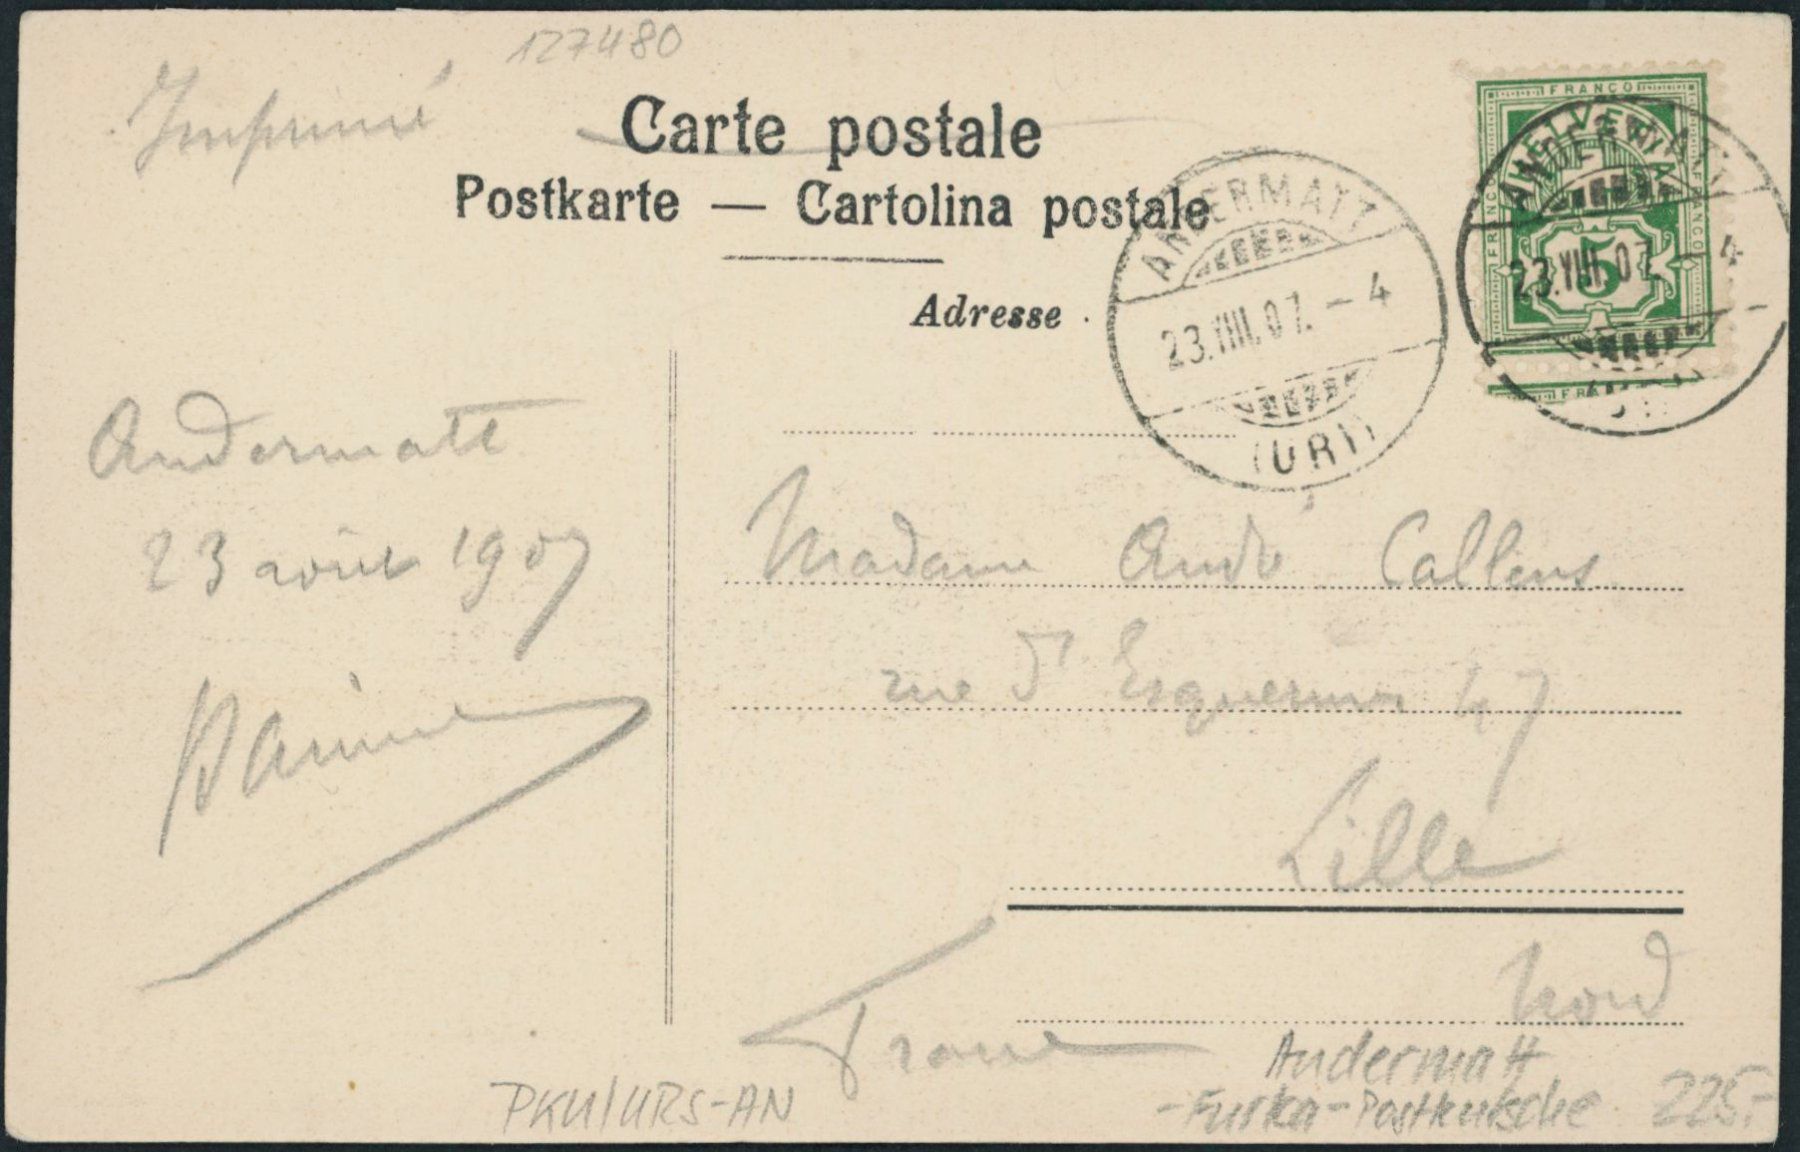 127480
Imprimé
Carte postale
Postkarte — Cartolina postale
Adresse
FRANCO
HELVETIA
FRANCO
FRANCO
5
ANDERMATT
23.VIII.07. – 4
(URI)
ANDERMATT
23.VIII.07. – 4
Andermatt
23 août 1907
Madame André Callens
rue d'Esquermes 47
Lille
Nord
France
PKU/URS-AN
Andermatt
-Furka-Postkutsche 225.-